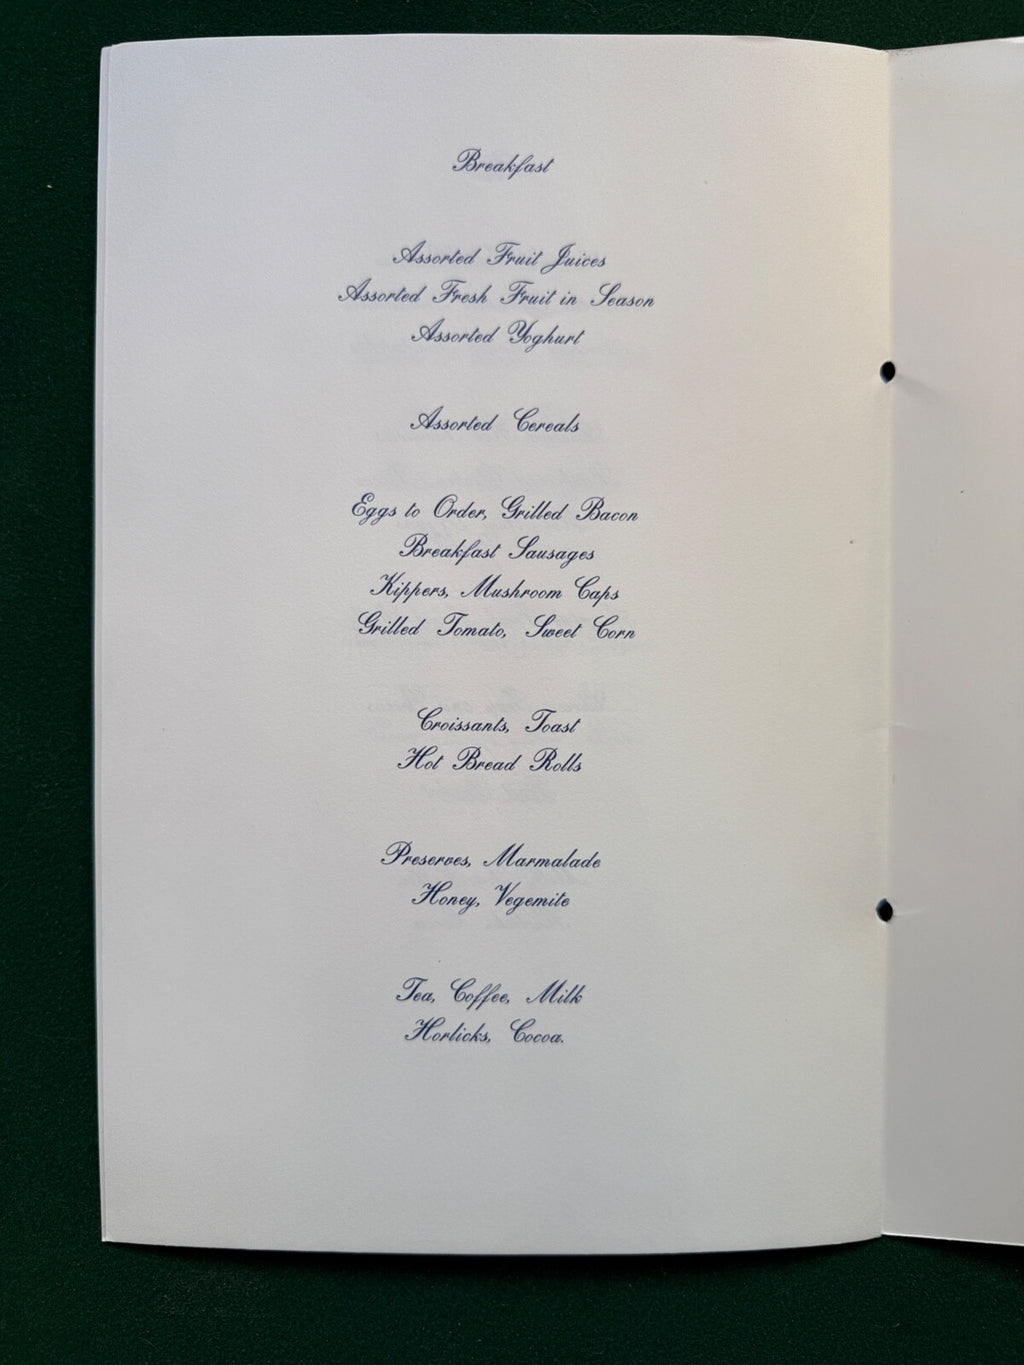 Breakfast
Assorted Fruit Juices
Assorted Fresh Fruit in Season
Assorted Yoghurt
Assorted Cereals
Eggs to Order, Grilled Bacon
Breakfast Sausages
Kippers, Mushroom Caps
Grilled Tomato, Sweet Corn
Croissants, Toast
Hot Bread Rolls
Preserves, Marmalade
Honey, Vegemite
Tea, Coffee, Milk
Horlicks, Cocoa.